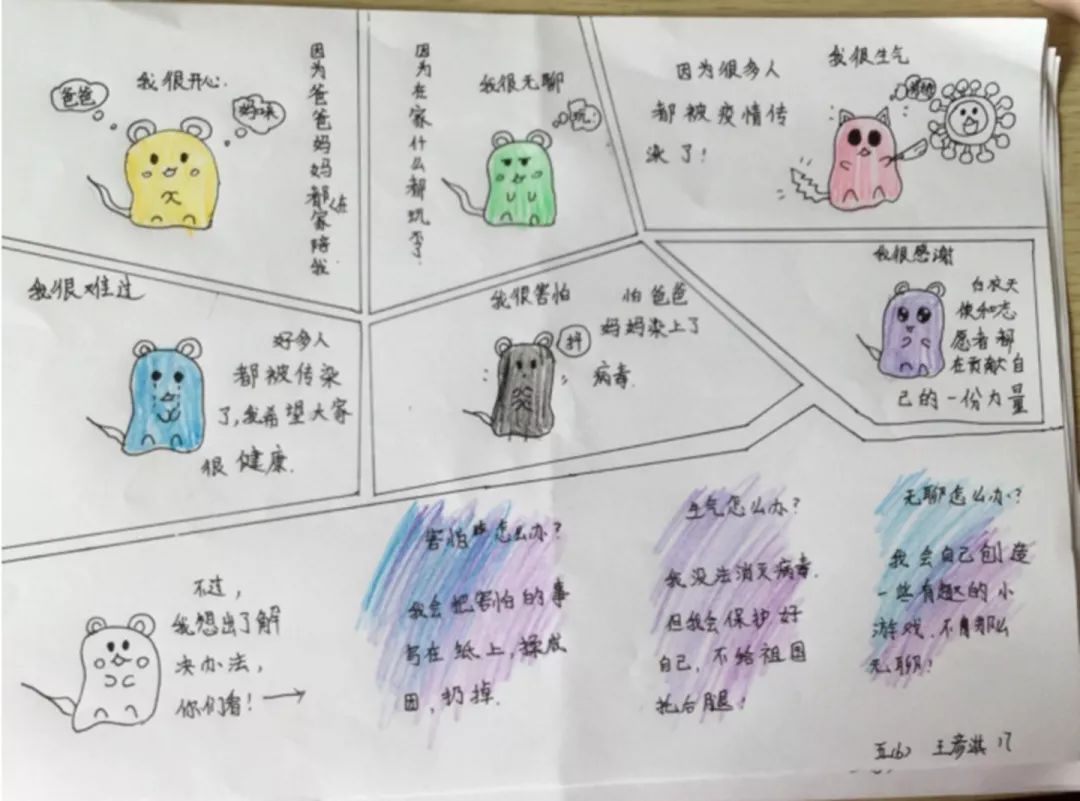 我很开心.
爸爸
妈咪
因为爸爸妈妈都在家陪我
因为在家什么都玩不了.
我很无聊
玩.
我很生气
因为很多人
都被疫情传
染了!
我很难过
好多人
都被传染
了,我希望大家
很健康.
我很害怕
抖
怕爸爸
妈妈染上了
病毒.
我很感谢
白衣天
使和志
愿者都
在贡献自
己的一份力量
不过,
我想出了解
决办法,
你们看!→
害怕怎么办?
我会把害怕的事
写在纸上,揉成
团,扔掉.
生气怎么办?
我没法消灭病毒.
但我会保护好
自己,不给祖国
拖后腿!
无聊怎么办?
我会自己创造
一些有趣的小
游戏,不用那么
无聊!
五(6) 王彦淇 17